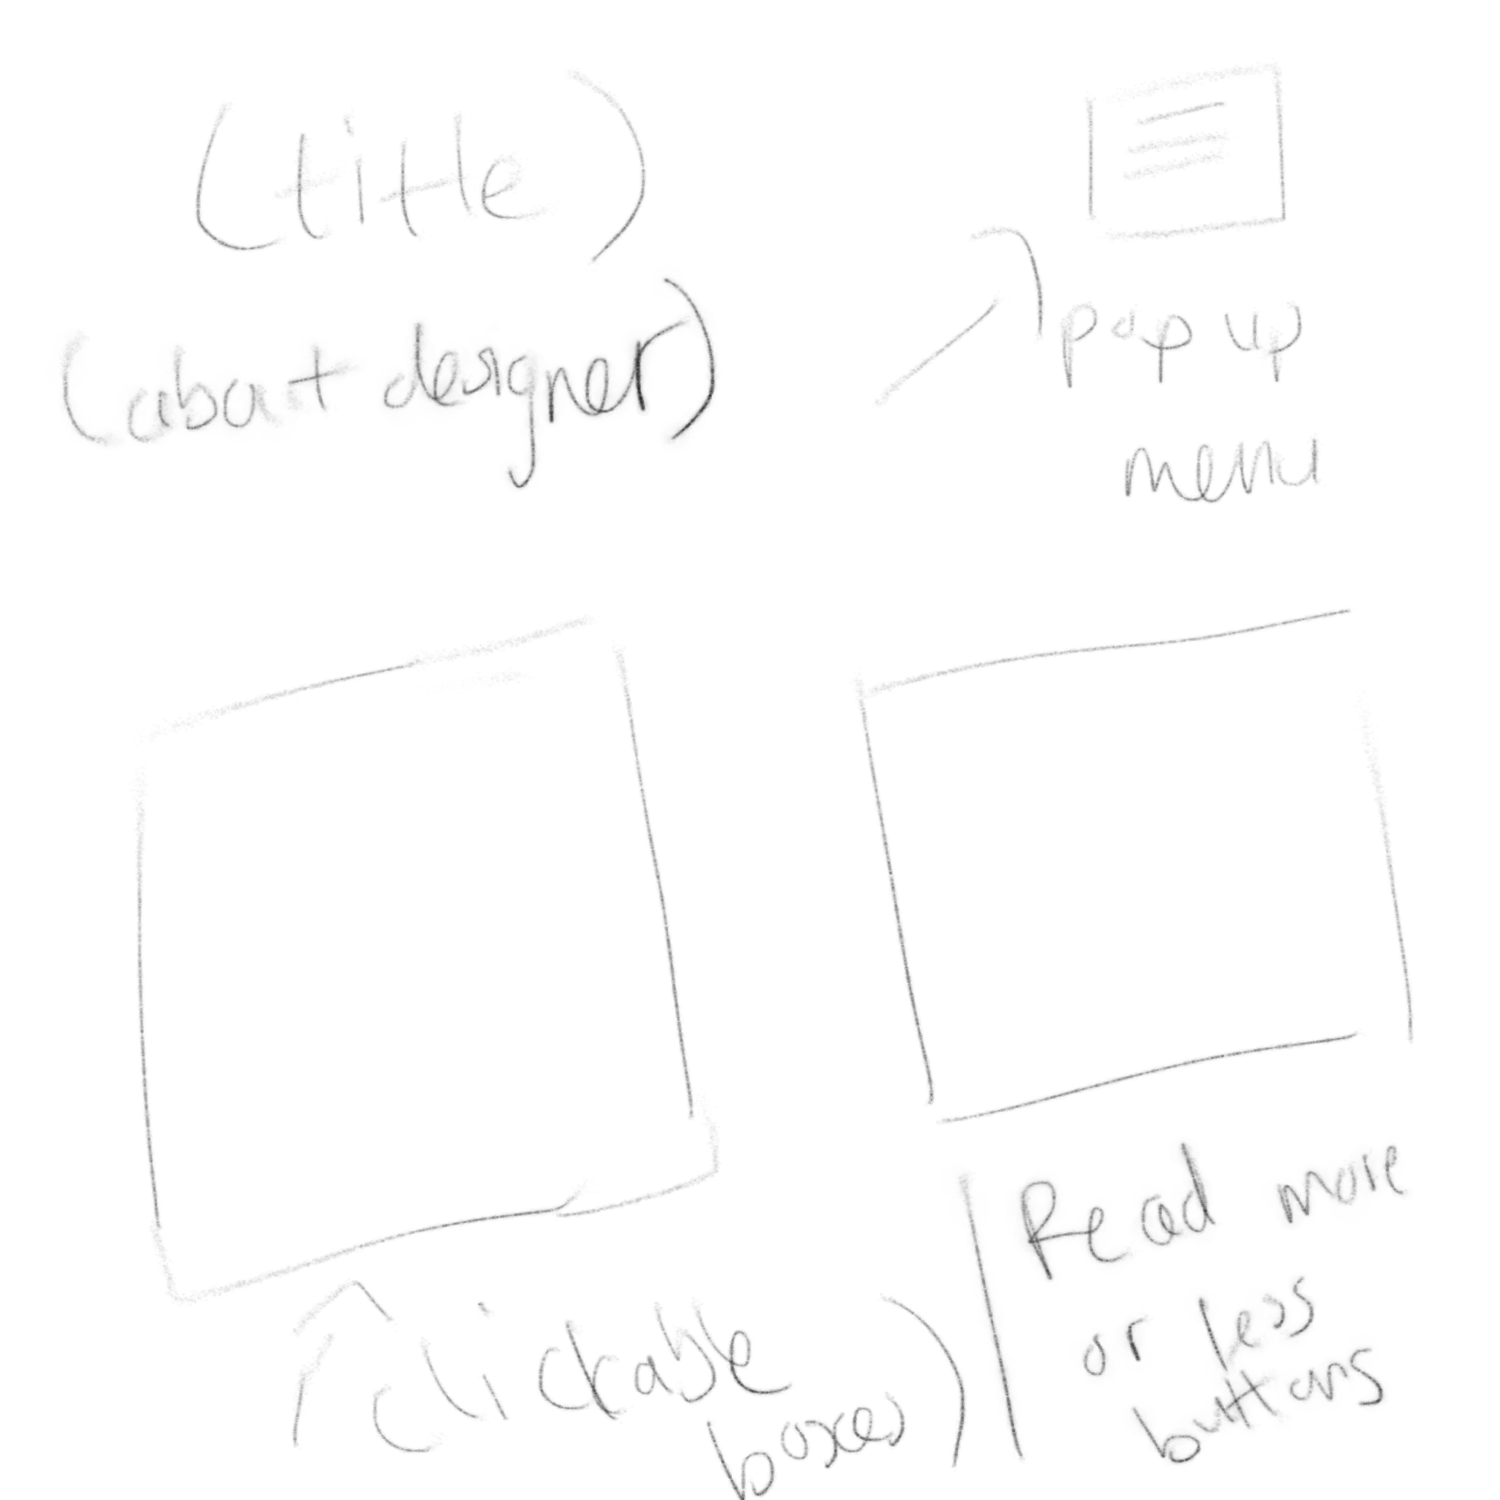 (title)
(about designer)
pop up
menu
(clickable
boxes)
Read more
or less
buttons